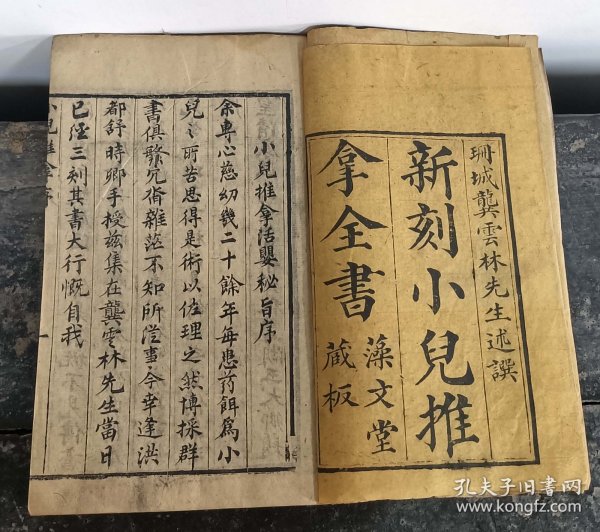 珊城龔雲林先生述譔
新刻小兒推
拿全書
藻文堂
蔵板
小兒推拿活嬰秘旨序
余專心慈幼幾二十餘年每患药餌為小
兒之所苦思得是術以佐理之然博採群
書俱繁冗肴雜茫不知所從事今幸逢洪
都舒時卿手授兹集在龔雲林先生當日
已經三刻其書大行慨自我
孔夫子旧书网
www.kongfz.com